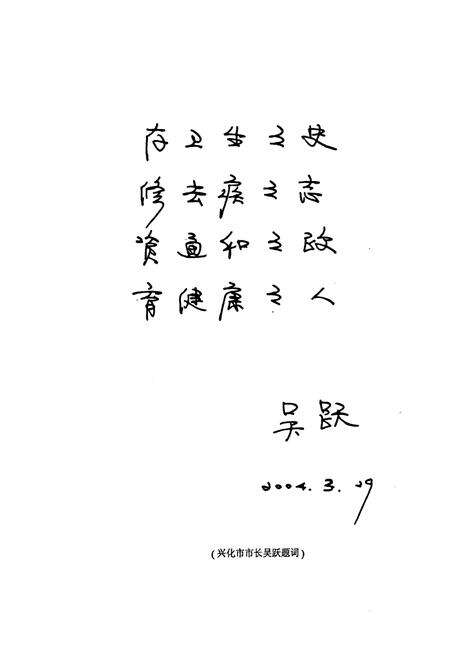 存卫生之史
修去疾之志
资通和之政
育健康之人
吴跃
2004.3.29
(兴化市市长吴跃题词)